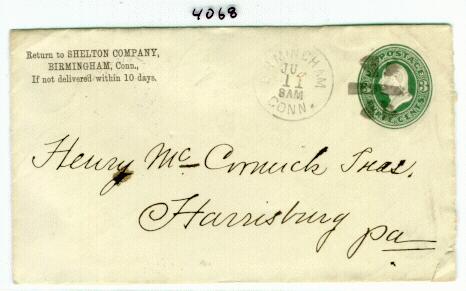 4068
Return to SHELTON COMPANY,
BIRMINGHAM, Conn.,
If not delivered within 10 days.
BIRMINGHAM
11
8AM
CONN.
U.S. POSTAGE
THREE CENTS
Henry McCormick Treas.
Harrisburg
Pa